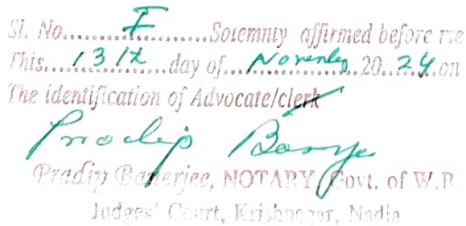 Sl. No.......I.......Solemnly affirmed before me
This...13th...day of...November...20..24.on
The identification of Advocate/clerk
Pradip Banerjee
Pradip Banerjee, NOTARY, Govt. of W.B
Judges' Court, Krishnagar, Nadia